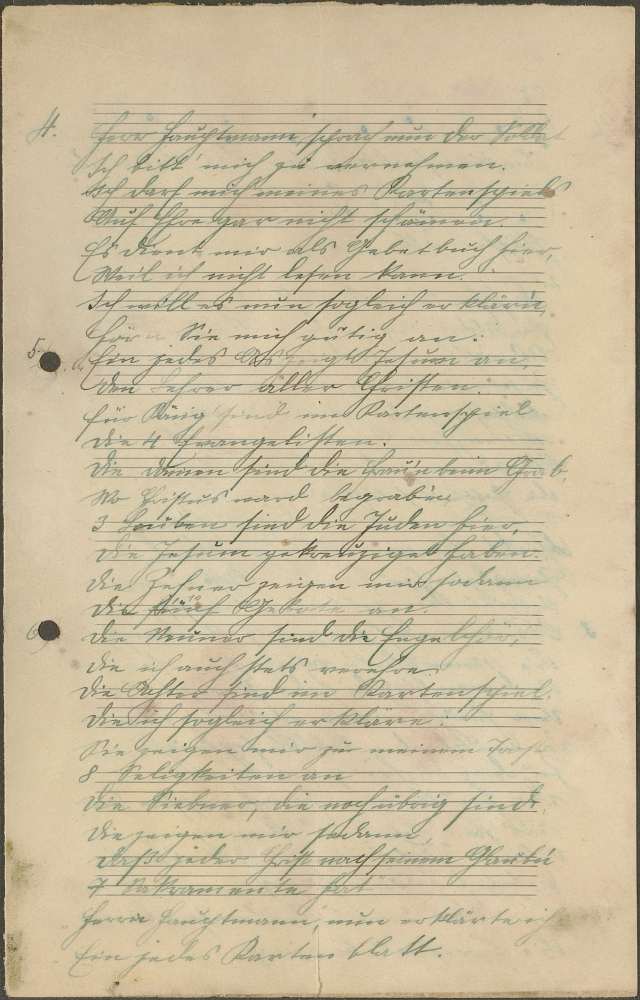 4. Herr Hauptmann, sprach nun der Soldat
Ich bitt' mich zu vernehmen.
Ich darf mich meines Kartenspiels
Auf Ehre gar nicht schämen.
Es dient mir als Gebetbuch hier,
Weil ich nicht lesen kann.
Ich will es nun sogleich erklärn,
hörn Sie mich gütig an:
5. Ein jedes As zeigt Jesum an,
den Lehrer aller Christen.
für König sind im Kartenspiel
die 4 Evangelisten.
Die Damen sind die Frau'n beim Grab,
Wo Christus ward begraben
3 Buben sind die Juden hier,
Die Jesum gekreuziget haben.
Die Zehner zeigen mir sodann
Die Gebote an.
6 Die Neuner sind die Engelchör,
die ich auch stets verehre.
Die Achter sind im Kartenspiel.
Die ich sogleich erkläre:
Sie zeigen mir zu meinem
8 Seligkeiten an
Die Siebner, die noch übrig sind.
Die zeigen mir sodann,
daß jeder Christ nach seinem Glauben
7 Sakramente hat
Herrn Hauptmann, nun erklärte ich
Ein jedes Karten blatt.